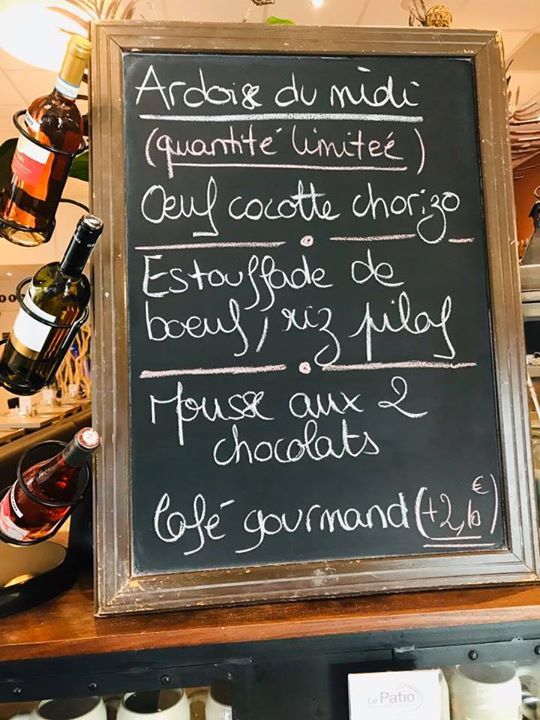 Ardoise du midi
(quantité limiteé)
Œuf cocotte chorizo
Estouffade de
boeuf, riz pilaf
Mousse aux 2
chocolats
Café gourmand (+2,10€)
Le Patio